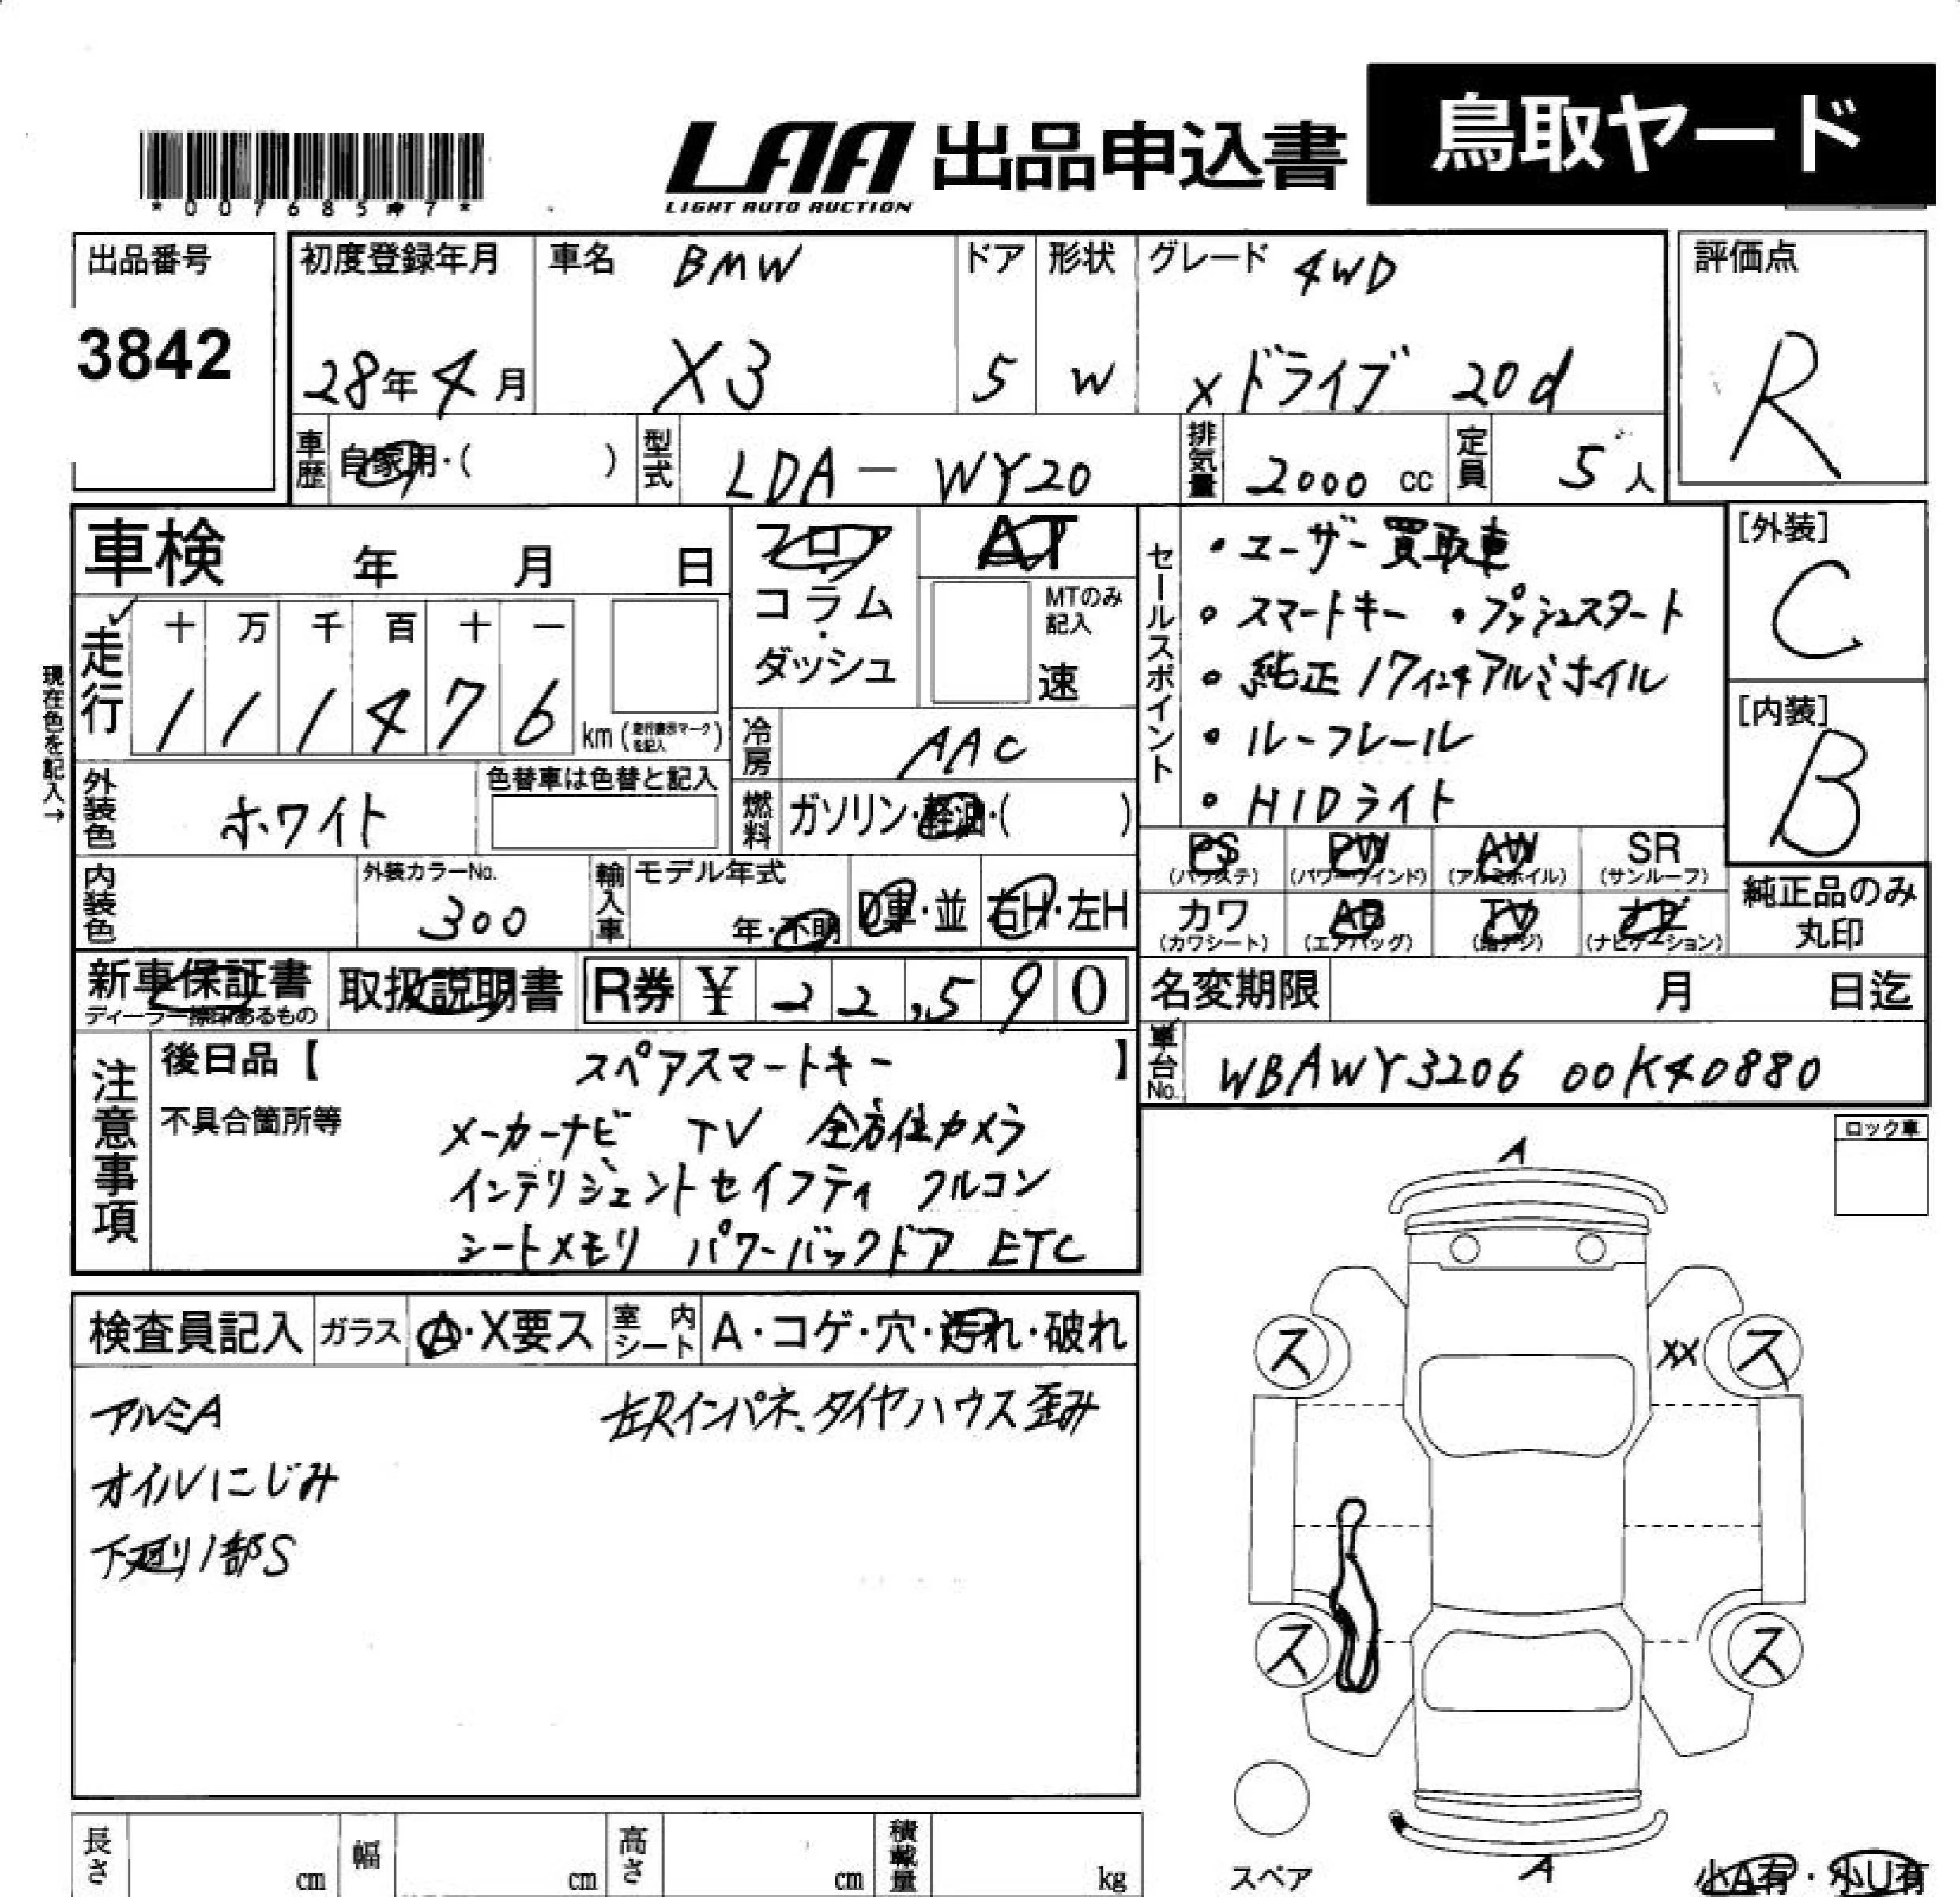 LAA 出品申込書 鳥取ヤード
LIGHT AUTO AUCTION
出品番号
3842
初度登録年月
28年4月
車名 BMW
X3
ドア
5
形状
W
グレード 4WD
xドライブ 20d
評価点
R
車歴 自家用・( )
型式 LDA-WY20
排気量 2000 cc
定員 5人
車検 年 月 日
フロア・コラム・ダッシュ
AT
MTのみ記入
速
セールスポイント
・ユーザー買取車
・スマートキー ・プッシュスタート
・純正17インチアルミホイル
・ルーフレール
・HIDライト
[外装]
C
[内装]
B
現在色を記入→
走行
十 万 千 百 十 一
1 1 1 4 7 6 km (走行表示マークを記入)
冷房 AAC
外装色 ホワイト
色替車は色替と記入
燃料 ガソリン・軽油・( )
内装色
外装カラーNo.
300
輸入車
モデル年式
年・不明
D車・並
右H・左H
PS (パワステ)
PW (パワーウインド)
AW (アルミホイル)
SR (サンルーフ)
カワ (カワシート)
AB (エアバッグ)
TV (地デジ)
ナビ (ナビゲーション)
純正品のみ丸印
新車保証書
ディーラー捺印あるもの
取扱説明書
R券 ¥ 22,590
名変期限 月 日迄
車台No. WBAWY320600K40880
注意事項
後日品【 スペアスマートキー 】
不具合箇所等
メーカーナビ TV 全方位カメラ
インテリジェントセイフティ クルコン
シートメモリ パワーバックドア ETC
ロック車
検査員記入
ガラス A・X要ス
室内シート A・コゲ・穴・汚れ・破れ
アルミA
左Rインパネ、タイヤハウス歪み
オイルにじみ
下廻り1部S
A
ス
XX
ス
ス
ス
スペア
A
小A有・小U有
長さ cm
幅 cm
高さ cm
積載量 kg